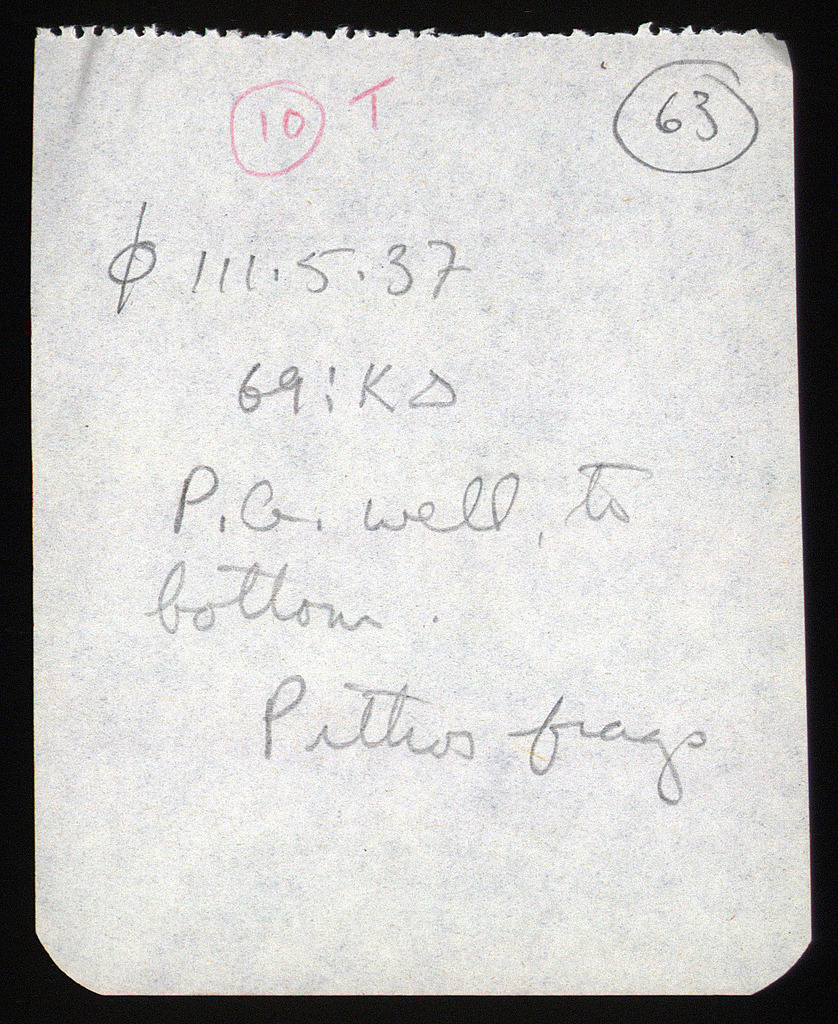 10 T
63
Φ 111.5.37
69:ΚΔ
P.G. well, to
bottom.
Pithos frags